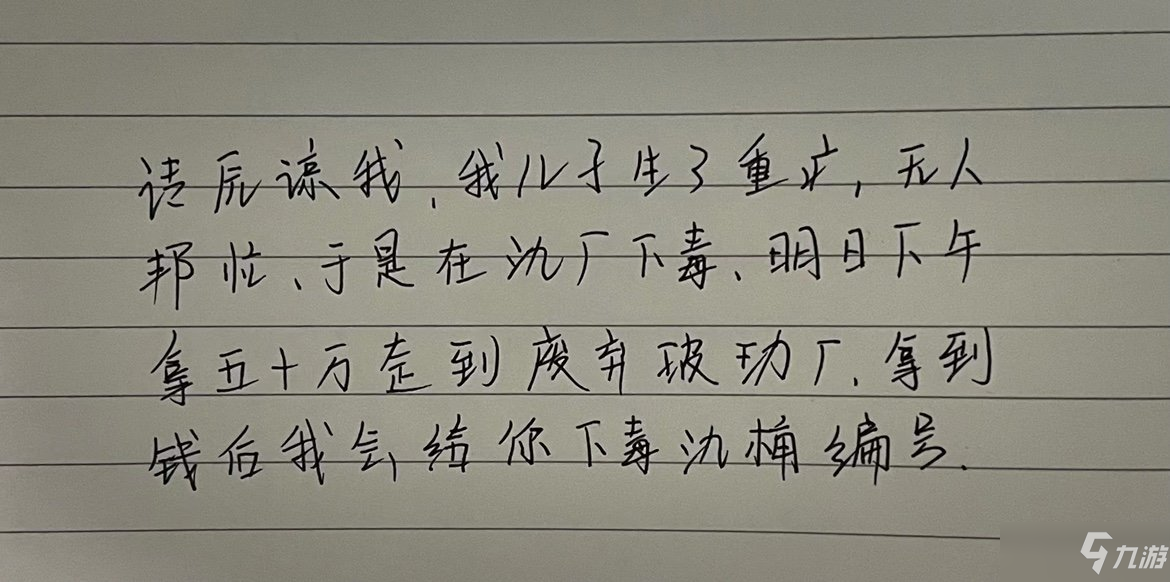 请原谅我,我儿子生了重疒,无人
邦忙、于是在氿厂下毒、明日下午
拿五十万走到废弃玻玏厂、拿到
钱后我会给你下毒氿桶编号.
九游